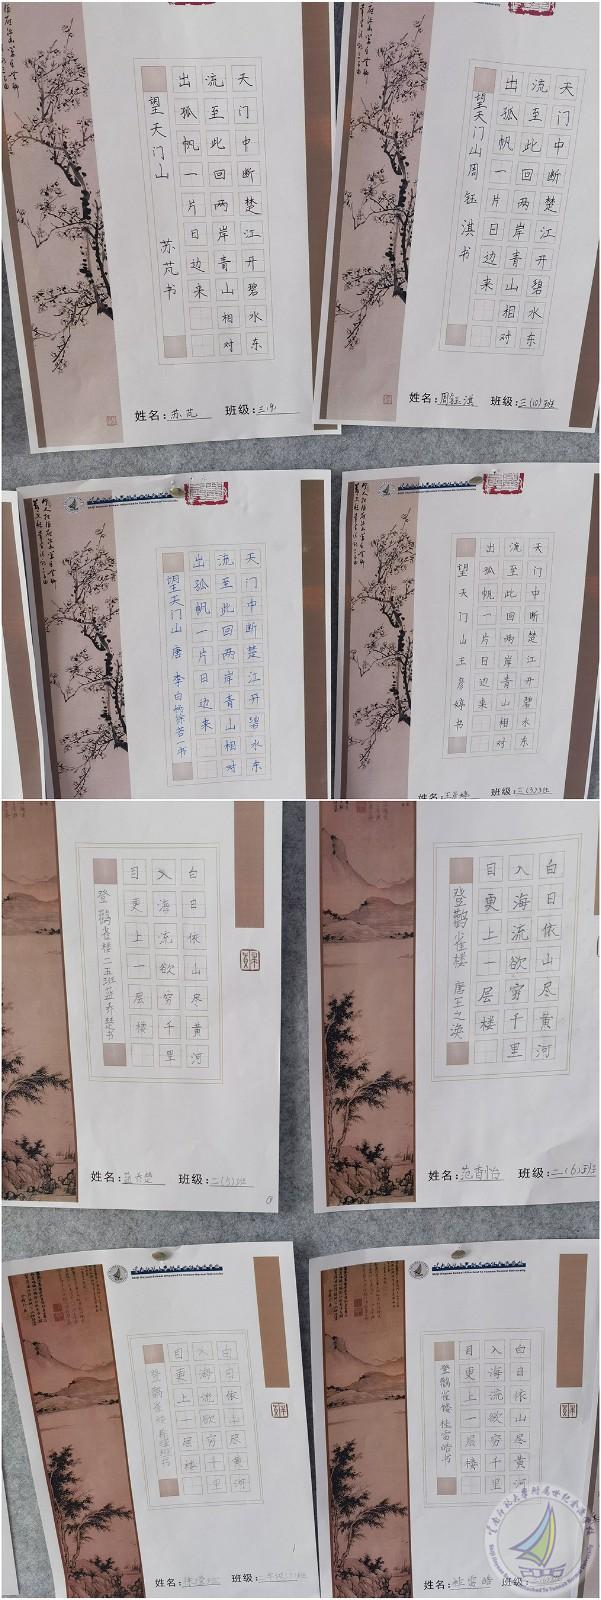 天门中断楚江开碧水东
流至此回两岸青山相对
出孤帆一片日边来
望天门山 苏芃书
姓名：苏芃 班级：三(9)
天门中断楚江开碧水东
流至此回两岸青山相对
出孤帆一片日边来
望天门山周钰淇书
姓名：周钰淇 班级：三(10)班
天门中断楚江开碧水东
流至此回两岸青山相对
出孤帆一片日边来
望天门山 唐 李白
天门中断楚江开碧水东
流至此回两岸青山相对
出孤帆一片日边来
望天门山王彦婷书
班级：三(3)班
白日依山尽黄河
入海流欲穷千里
目更上一层楼
登鹳雀楼二五班蓝卉楚书
姓名：蓝卉楚 班级：二(5)班
白日依山尽黄河
入海流欲穷千里
目更上一层楼
登鹳雀楼 唐王之涣
姓名：范香怡 班级：二(6)班
白日依山尽黄河
入海流欲穷千里
目更上一层楼
登鹳雀楼
姓名： 班级：
白日依山尽黄河
入海流欲穷千里
目更上一层楼
登鹳雀楼杜富皓书
姓名：杜富皓 班级：